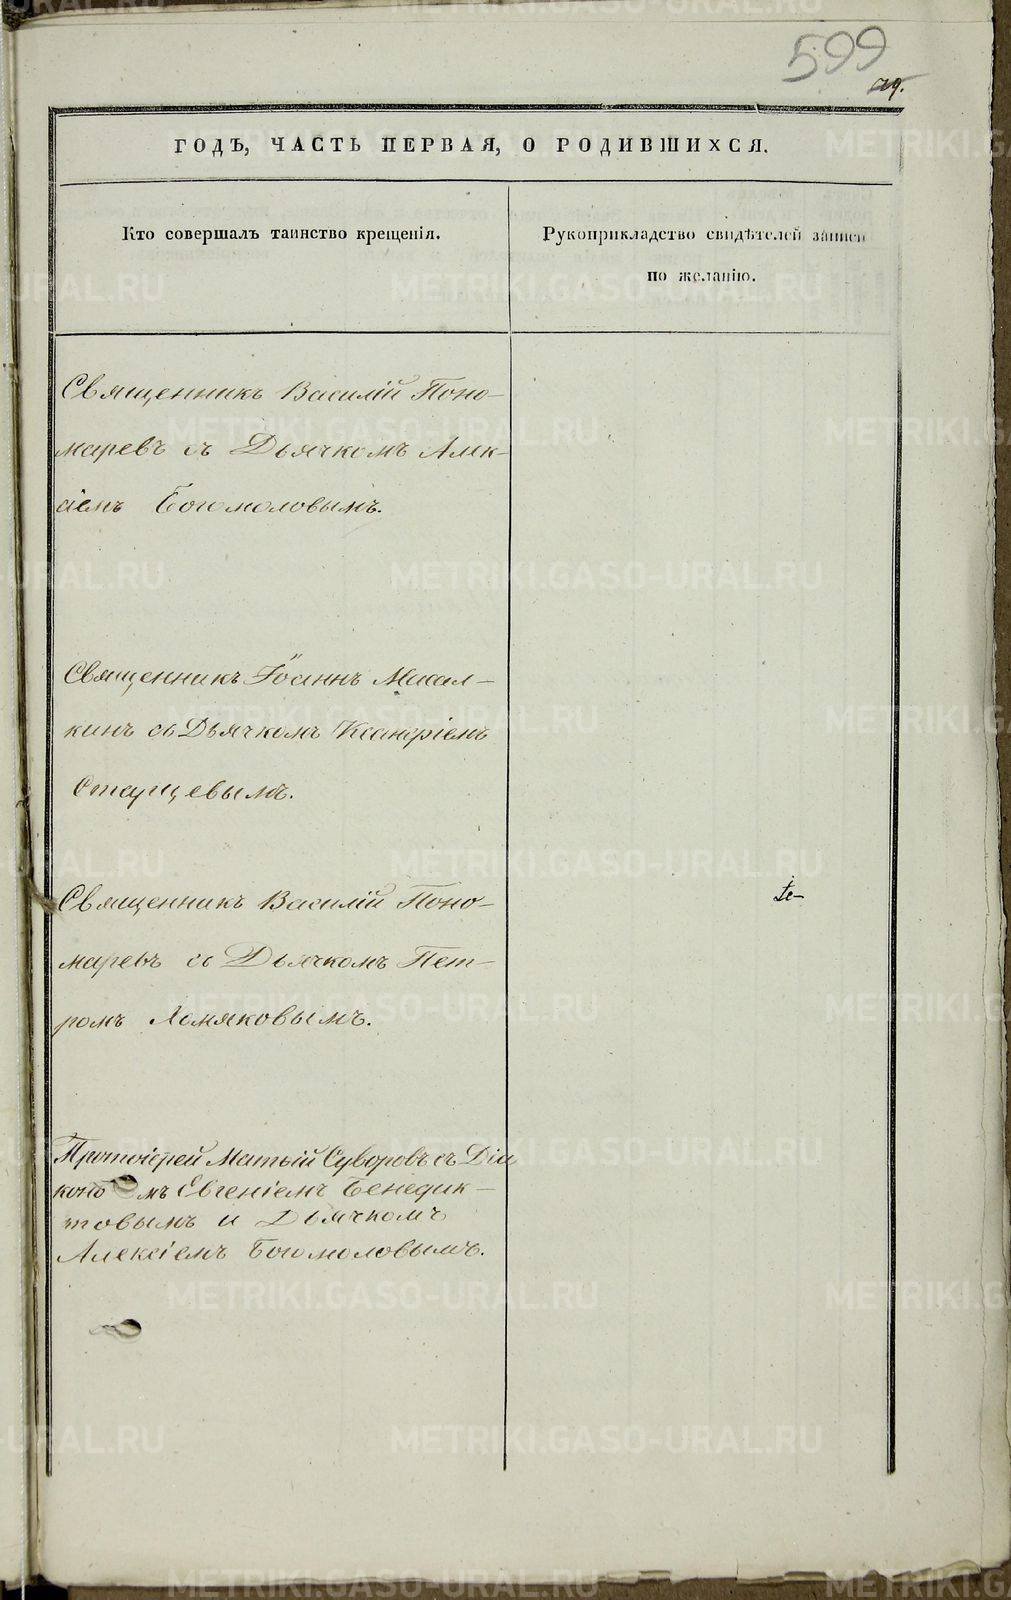 599
ГОДЪ, ЧАСТЬ ПЕРВАЯ, О РОДИВШИХСЯ.
Кто совершалъ таинство крещенія.
Рукоприкладство свидѣтелей записи
по желанію.
Священникъ Василій Поно-
маревъ съ Дьячкомъ Алек-
сіемъ Богомоловымъ.
Священникъ Іоаннъ Макал-
кинъ съ Дьячкомъ
Старцевымъ.
Священникъ Василій Поно-
маревъ съ Дьячкомъ Пет-
ромъ Хомяковымъ.
Протоіерей Матѳій Суворовъ съ Діа
коно мъ Евгеніемъ Бенедик-
товымъ и Дьячкомъ
Алексіемъ Богомоловымъ.
METRIKI.GASO-URAL.RU